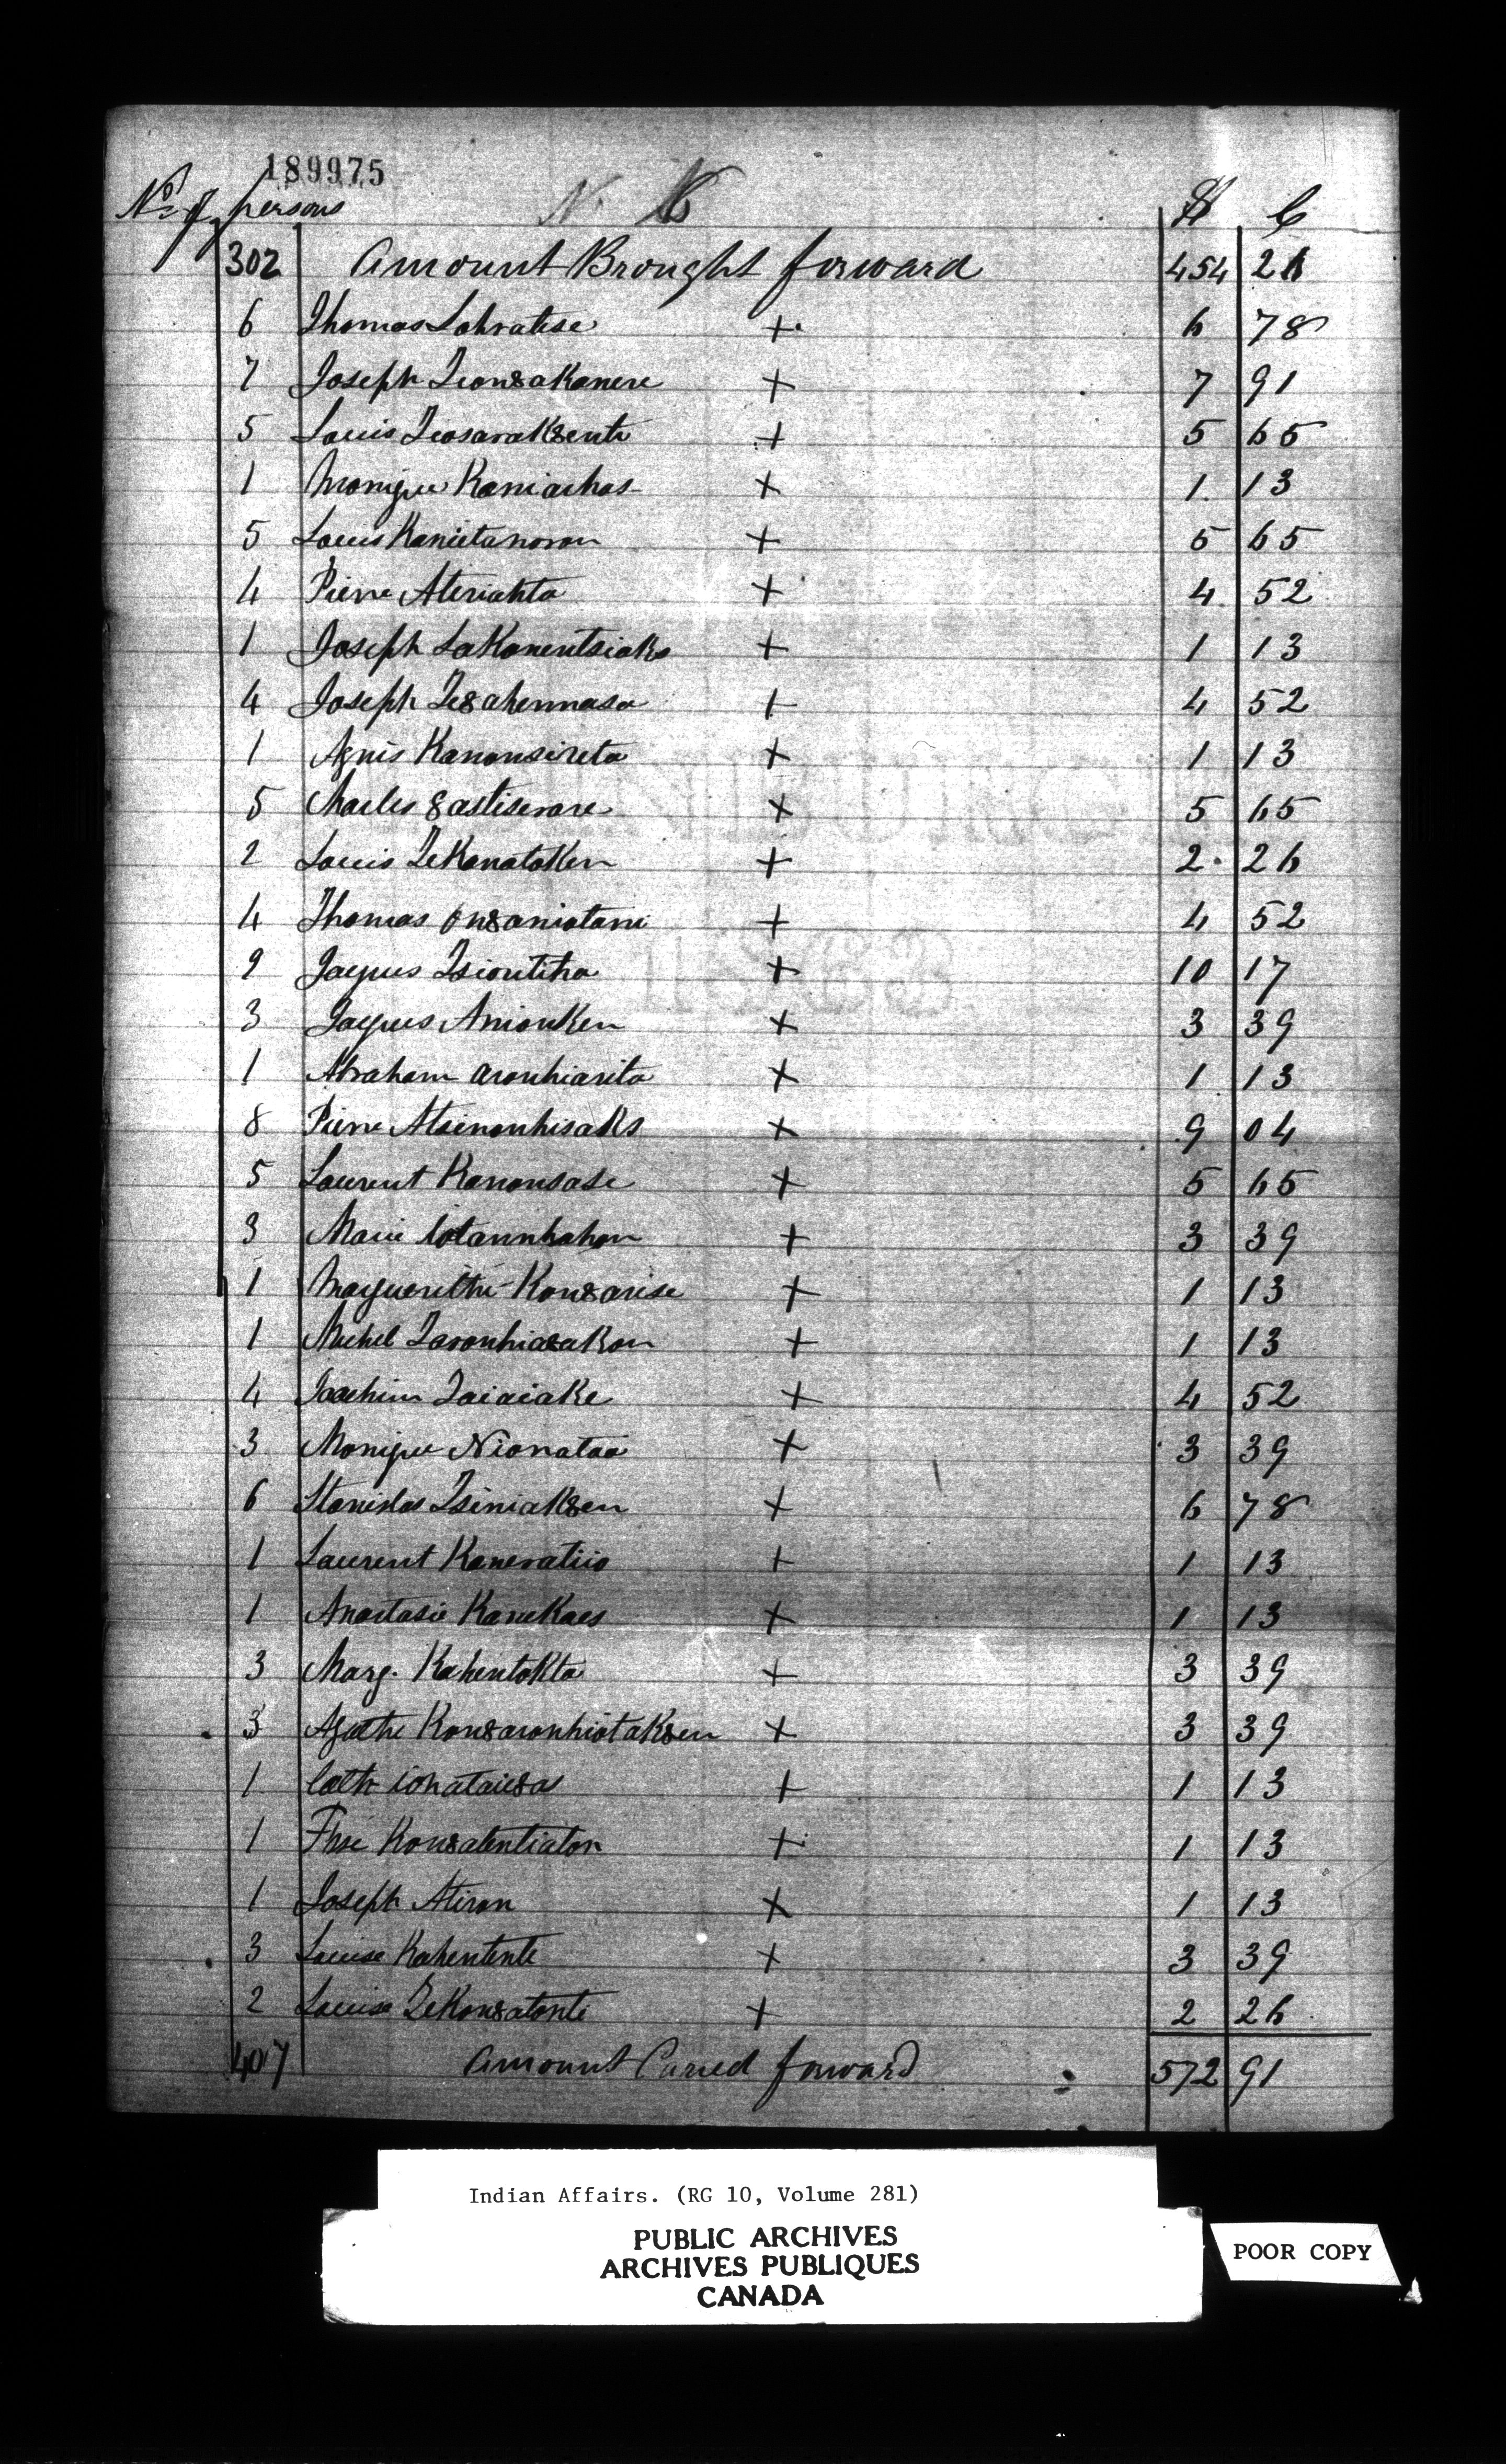 189975
No of persons N. 6 $ C
302 Amount Brought forward 454 21
6 Thomas Sohratese + 6 78
7 Joseph Teon8aKanere + 7 91
5 Louis TeosaraK8ente + 5 65
1 Monique Kaniachas + 1 13
5 Louis Kanietanoron + 5 65
4 Pierre Ateriahta + 4 52
1 Joseph SaKonentsiaks + 1 13
4 Joseph Te8ahennasa + 4 52
1 Agnis Kanonsireta + 1 13
5 Charles 8astiserare + 5 65
2 Louis TeKanatoKen + 2 26
4 Thomas On8aniatani + 4 52
9 Jacques Tsiontitha + 10 17
3 Jacques AnionKen + 3 39
1 Abraham Aronhiarita + 1 13
8 Pierre AtsenonhisaKs + 9 04
5 Laurent Kanonsase + 5 65
3 Marie Iotannhahon + 3 39
1 Margueritte Kon8arise + 1 13
1 Michel Taronhia8aKon + 1 13
4 Joachim TaiaiaKe + 4 52
3 Monique Nionataa + 3 39
6 Stanislas TsiniaK8en + 6 78
1 Laurent Kaneratiio + 1 13
1 Anastasie KaneKaes + 1 13
3 Marg. KahentoKta + 3 39
3 Agathe Kon8aronhiotaK8en + 3 39
1 Cath ionataie8as + 1 13
1 Fhse Kon8atentiaton + 1 13
1 Joseph Atiron + 1 13
3 Louise Kahentente + 3 39
2 Louise TeKon8atonte + 2 26
407 Amount Caried forward 572 91
Indian Affairs. (RG 10, Volume 281)
PUBLIC ARCHIVES
ARCHIVES PUBLIQUES
CANADA
POOR COPY